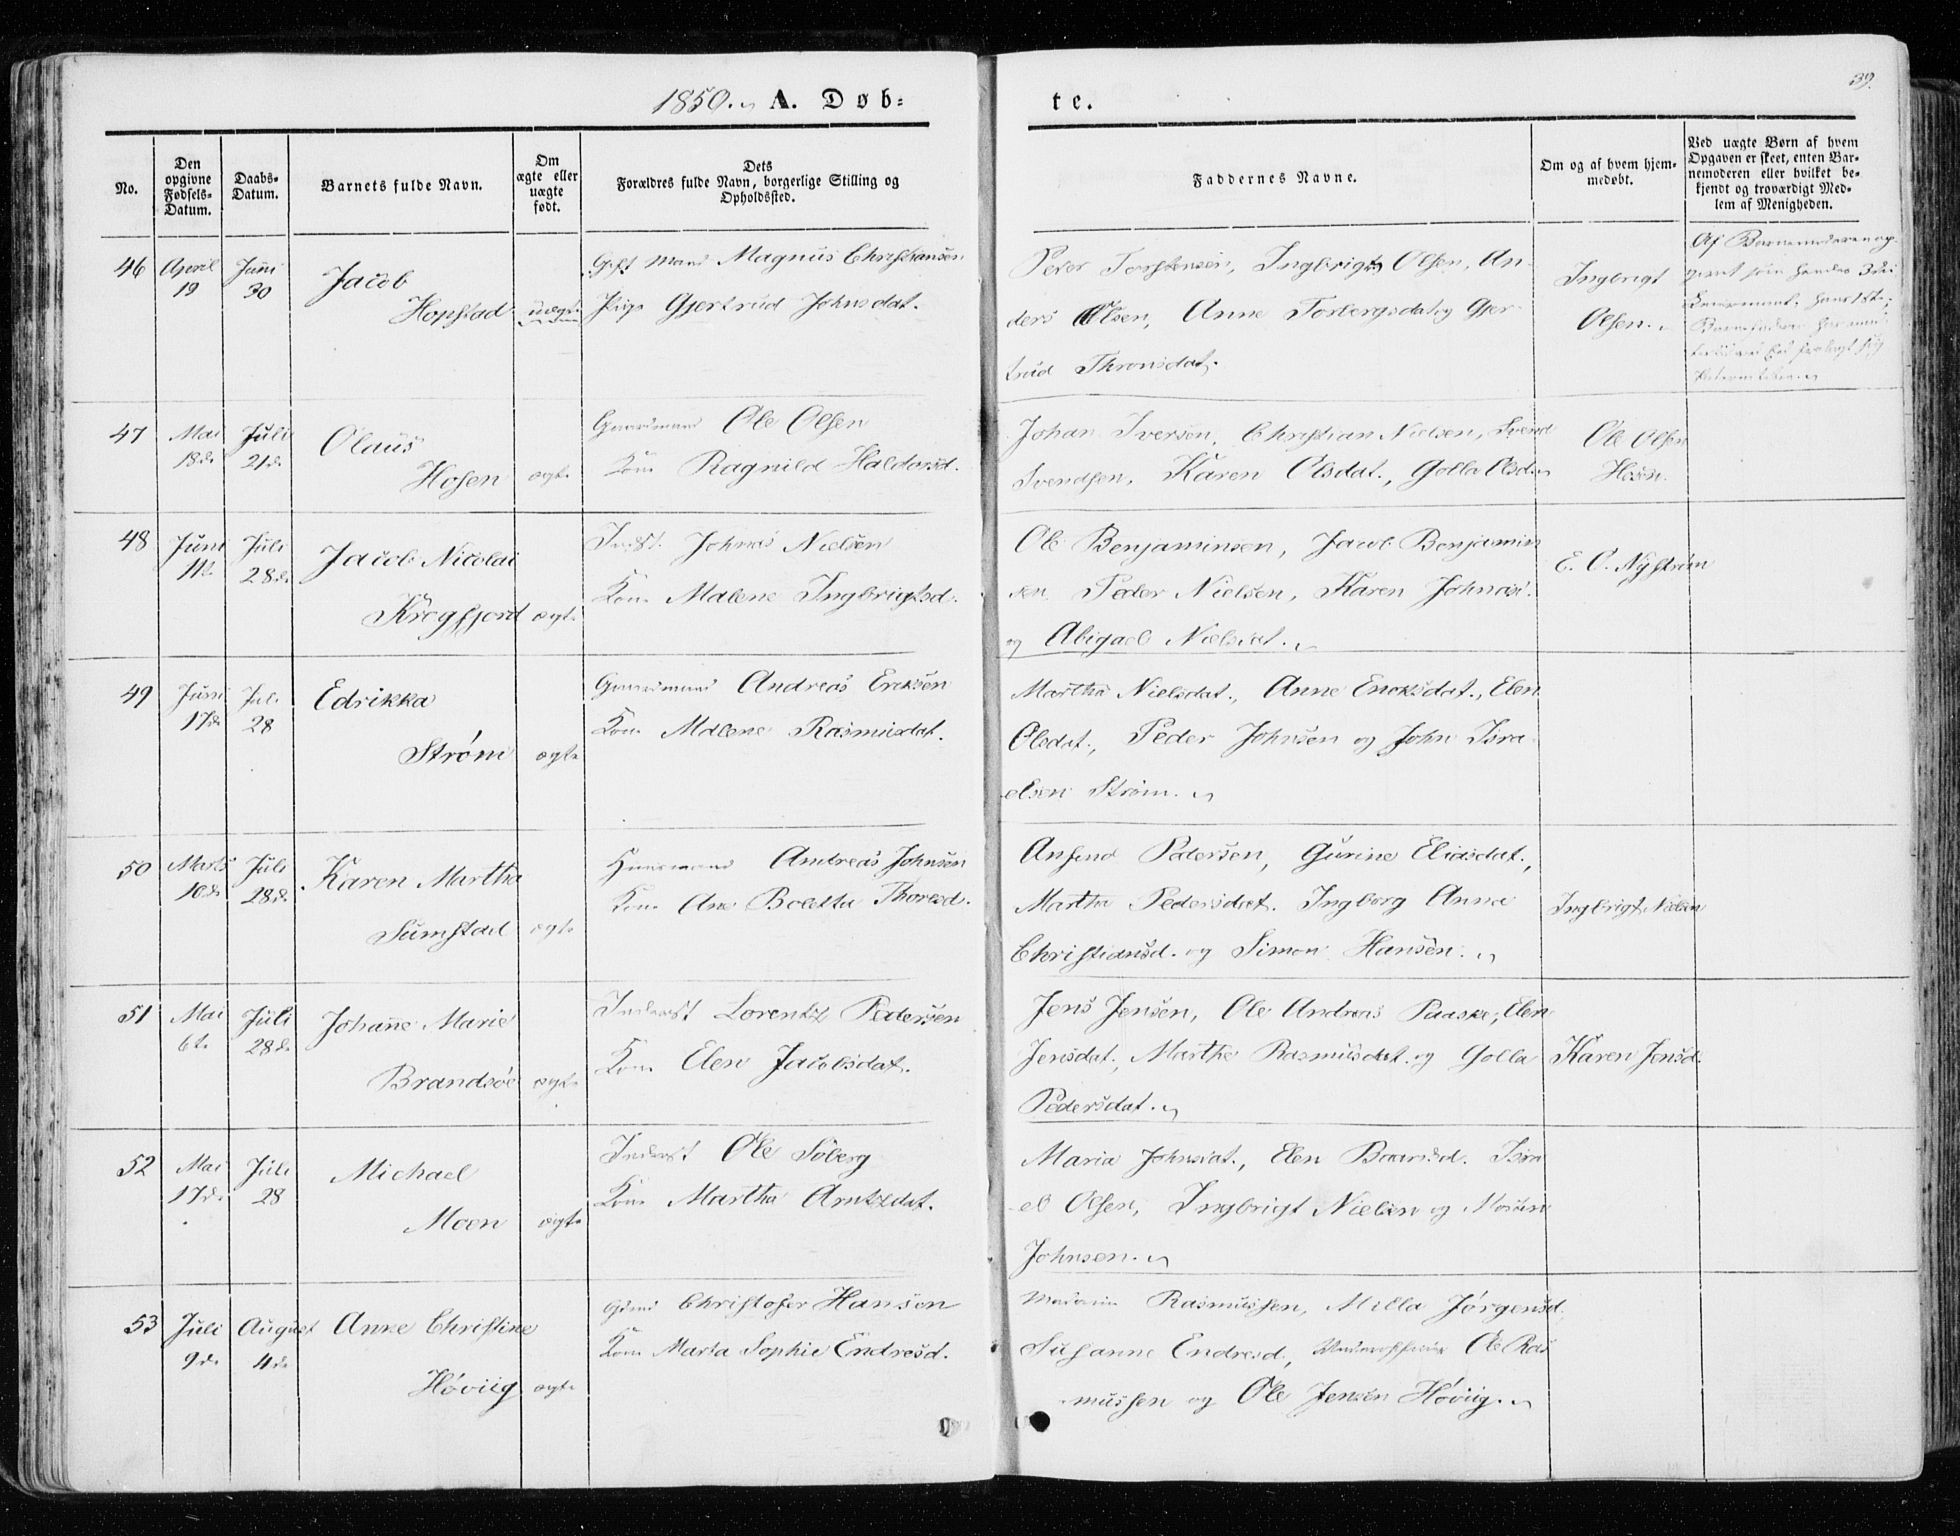 1850. A. Døb=
te.
39.
No.
Den opgivne Fødsels= Datum.
Daabs= Datum.
Barnets fulde Navn.
Om ægte eller uægte født.
Dets
Forældres fulde Navn, borgerlige Stilling og
Opholdssted.
Faddernes Navne.
Om og af hvem hjem=
medøbt.
Ved uægte Børn af hvem
Opgaven er skeet, enten Bar=
nemoderen eller hvilket be=
kjendt og troværdigt Med=
lem af Menigheden.
46 April 19 Juni 30 Jacob Hopstad uægte
Gift Mand Magnus Christiansen
Pige Gjertrud Johnsdat.
Peder Torstensen, Ingbrigt Olsen, An-
ders Olsen, Anne Torbergsdat og Gjer-
trud Thronsdat.
Ingbrigt
Olsen.
Af Barnemoderen op-
47 Mai 18de Juli 21de Olaus Hosen ægte
Gaardmand Ole Olsen
Kone Ragnild Haldorsd.
Johan Iversen, Christian Nielsen, Svend
Svendsen, Karen Olsdat., Golla Olsd.
Ole Olsen
Hosen.
48 Juni 11te Juli 28de Jacob Nicolai Kregfjord ægte
Inderst. Johnas Nielsen
Kone Malene Ingbrigtsd.
Ole Benjaminsen, Jacob Benjamin
sen, Peder Nielsen, Karen Johnasd.
og Abigael Nielsdat.
E. C. Nystrøm
49 Juni 17de Juli 28 Edrikka Strøm ægte
Gaardmand Andreas Ericksen
Kone Malene Rasmusdat.
Martha Nielsdat., Anne Enoksdat., Elen
Olsdat., Peder Johnsen og John Isra-
elsen Strøm.
50 Marts 10de Juli 28de Karen Martha Sumstad ægte
Huusmand Andreas Johnsen
Kone Ane Boletta Thoresd.
Ansend Pedersen, Gurine Eliasdat.,
Martha Pedersdat. Ingborg Anna
Christiansd. og Simon Hansen.
Ingbrigt Nielsen
51 Mai 6te Juli 28de Johanne Marie Brandsøe ægte
Inderst Lorentz Pedersen
Kone Elen Jacobsdat.
Jens Jensen, Ole Andreas Paaske, Elen
Jensdat., Marthe Rasmusdat. og Golla
Pedersdat.
Karen Jensd.
52 Mai 17de Juli 28 Michael Moen ægte
Inderst Ole Søberg
Kone Martha Arntzdat.
Maria Johnsdat., Elen Baarsd. Isra
el Olsen, Ingbrigt Nielsen og
Johnsen.
53 Juli 9de August 4de Anne Christine Høviig ægte
Gdmd Christofer Hansen
Kone Marta Sophie Endresd.
Madam Rasmussen, Milla Jørgensd.
Susanne Endresd., Underofficier Ole Ras
mussen og Ole Jensen Høviig.